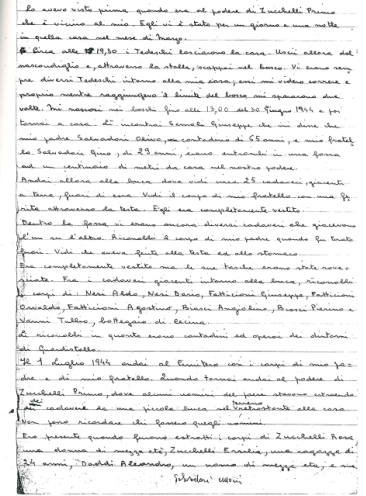 lo avevo visto prima quando ero al podere di Zucchelli Primo
che è vicino al mio. Egli vi è stato per un giorno e una notte
in quella casa nel mese di Marzo.
Circa alle 19,30 i Tedeschi lasciarono la casa. Uscii allora dal
nascondiglio e, attraverso la stalla, scappai nel bosco. Vi erano sem-
pre diversi Tedeschi intorno alla mia casa; essi mi videro correre e
proprio mentre raggiungevo il limite del bosco mi spararono due
volte. Mi nascosi nei boschi fino alle 13,00 del 30 Giugno 1944 e poi
tornai a casa. Lì incontrai Giuseppe che mi disse che
mio padre Salvadori Olivo, un contadino di 65 anni, e mio fratel-
lo Salvadori Gino, di 29 anni, erano entrambi in una fossa
ad un centinaio di metri da casa nel nostro podere.
Andai allora alla buca dove vidi circa 25 cadaveri, giacenti
a terra, fuori di essa. Vidi il corpo di mio fratello con una fe-
rita attraverso la testa. Egli era completamente vestito.
Dentro la fossa vi erano ancora diversi cadaveri che giacevano
l'un su d'altro. Riconobbi il corpo di mio padre quando fu tirato
fuori. Vidi che aveva ferite alla testa ed allo stomaco.
Era completamente vestito ma le sue tasche erano state rove-
sciate. Fra i cadaveri giacenti intorno alla buca, riconobbi
i corpi di: Neri Aldo, Neri Dario, Fatticcioni Giuseppe, Fatticcioni
Osvaldo, Fatticcioni Agostino, Biasci Angiolino, Biasci Pierino e
Vanni Tullio, bottegaio di Cecina.
Li riconobbi in quanto erano contadini ed operai dei dintorni
di Guardistallo.
Il 1 Luglio 1944 andai al Cimitero con i corpi di mio pa-
dre e di mio fratello. Quando tornai andai al podere di
Zucchelli Primo, dove alcuni uomini del paese stavano estraendo
dei cadaveri da una piccola buca nel terreno retrostante alla casa
Non posso ricordare chi fossero quegli uomini
Ero presente quando furono estratti i corpi di Zucchelli Rosa,
una donna di mezza età, Zucchelli Ersilia, una ragazza di
24 anni, Doddi Alessandro, un uomo di mezza età, e suo
Salvadori